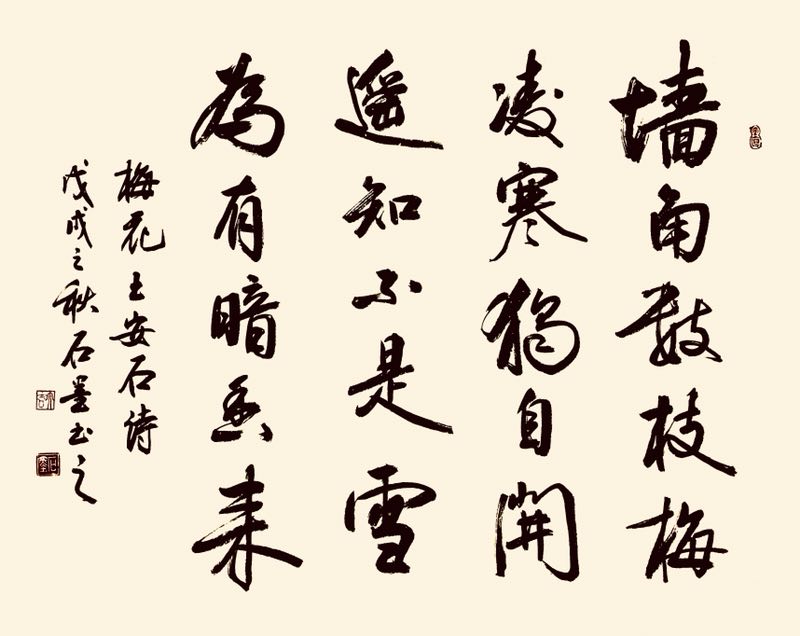 墙角数枝梅
凌寒独自開
遥知不是雪
為有暗香来
梅花王安石诗
戊戌之秋石墨书之